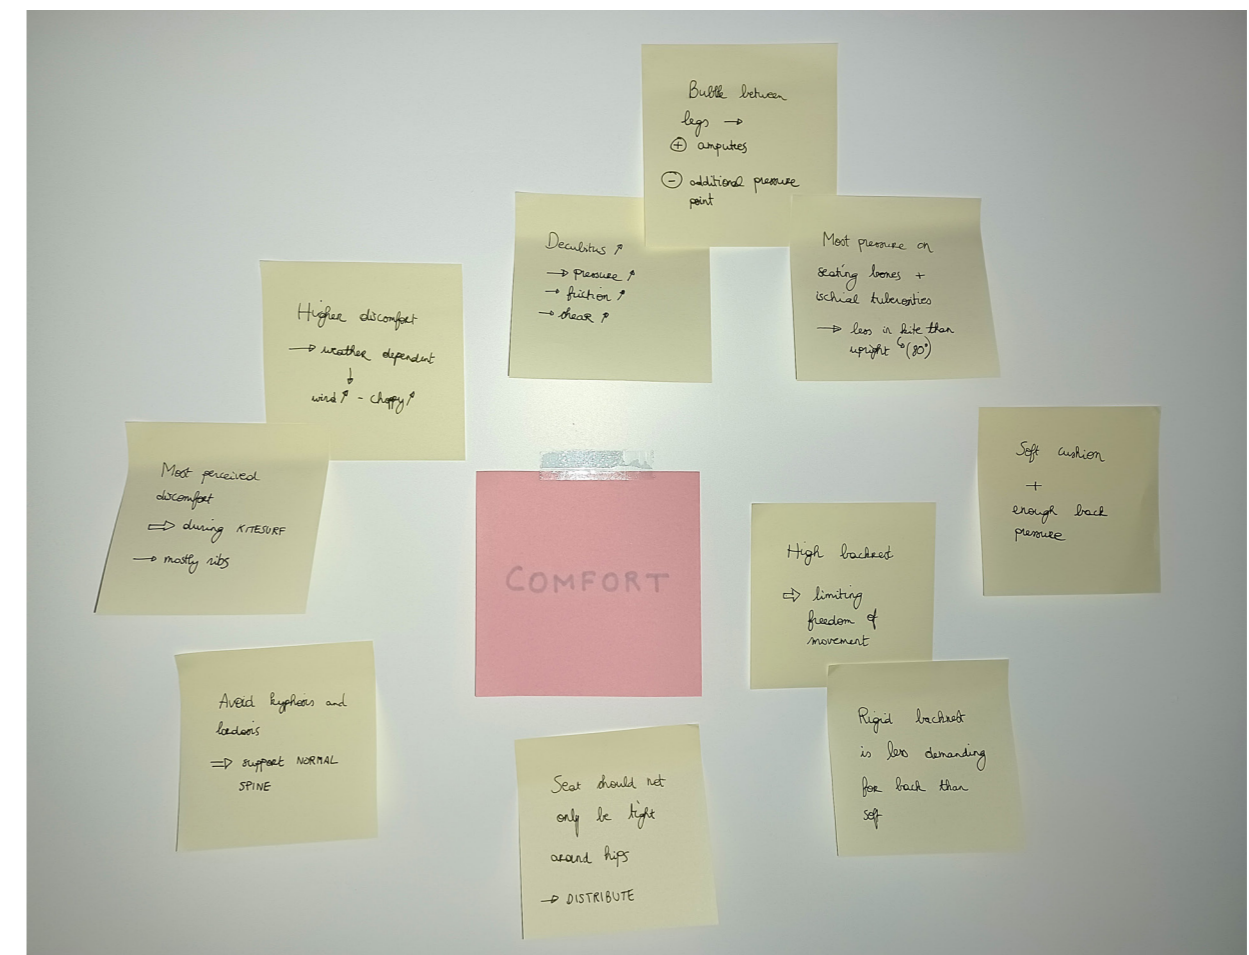 Bubble between
legs →
⊕ amputees
⊖ additional pressure
point
Decubitus ↗
→ pressure ↗
→ friction ↗
→ shear ↗
Most pressure on
seating bones +
ischial tuberosities
→ less in kite than
upright ↳(80°)
Higher discomfort
→ weather dependent
↓
wind ↗ - choppy ↗
Most perceived
discomfort
⇒ during KITESURF
→ mostly ribs
COMFORT
High backrest
⇒ limiting
freedom of
movement
Soft cushion
+
enough back
pressure
Avoid kyphosis and
lordosis
⇒ support NORMAL
SPINE
Seat should not
only be tight
around hips
→ DISTRIBUTE
Rigid backrest
is less demanding
for back than
soft